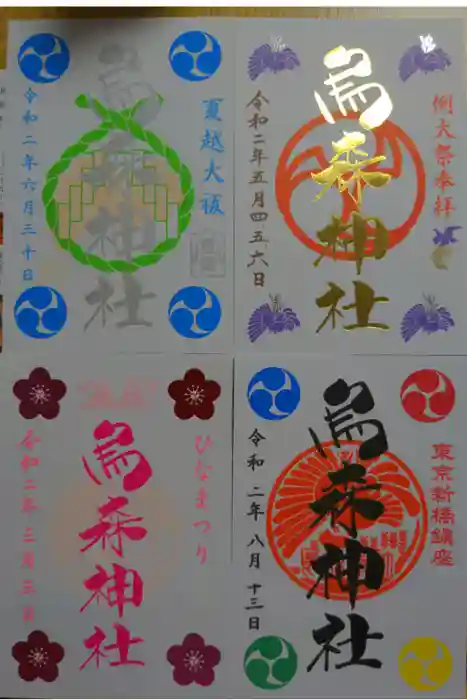 夏越大祓
烏森神社
令和二年六月三十日
例大祭奉拝
烏森神社
令和二年五月四五六日
ひなまつり
烏森神社
令和二年三月三日
東京新橋鎮座
烏森神社
令和二年八月十三日